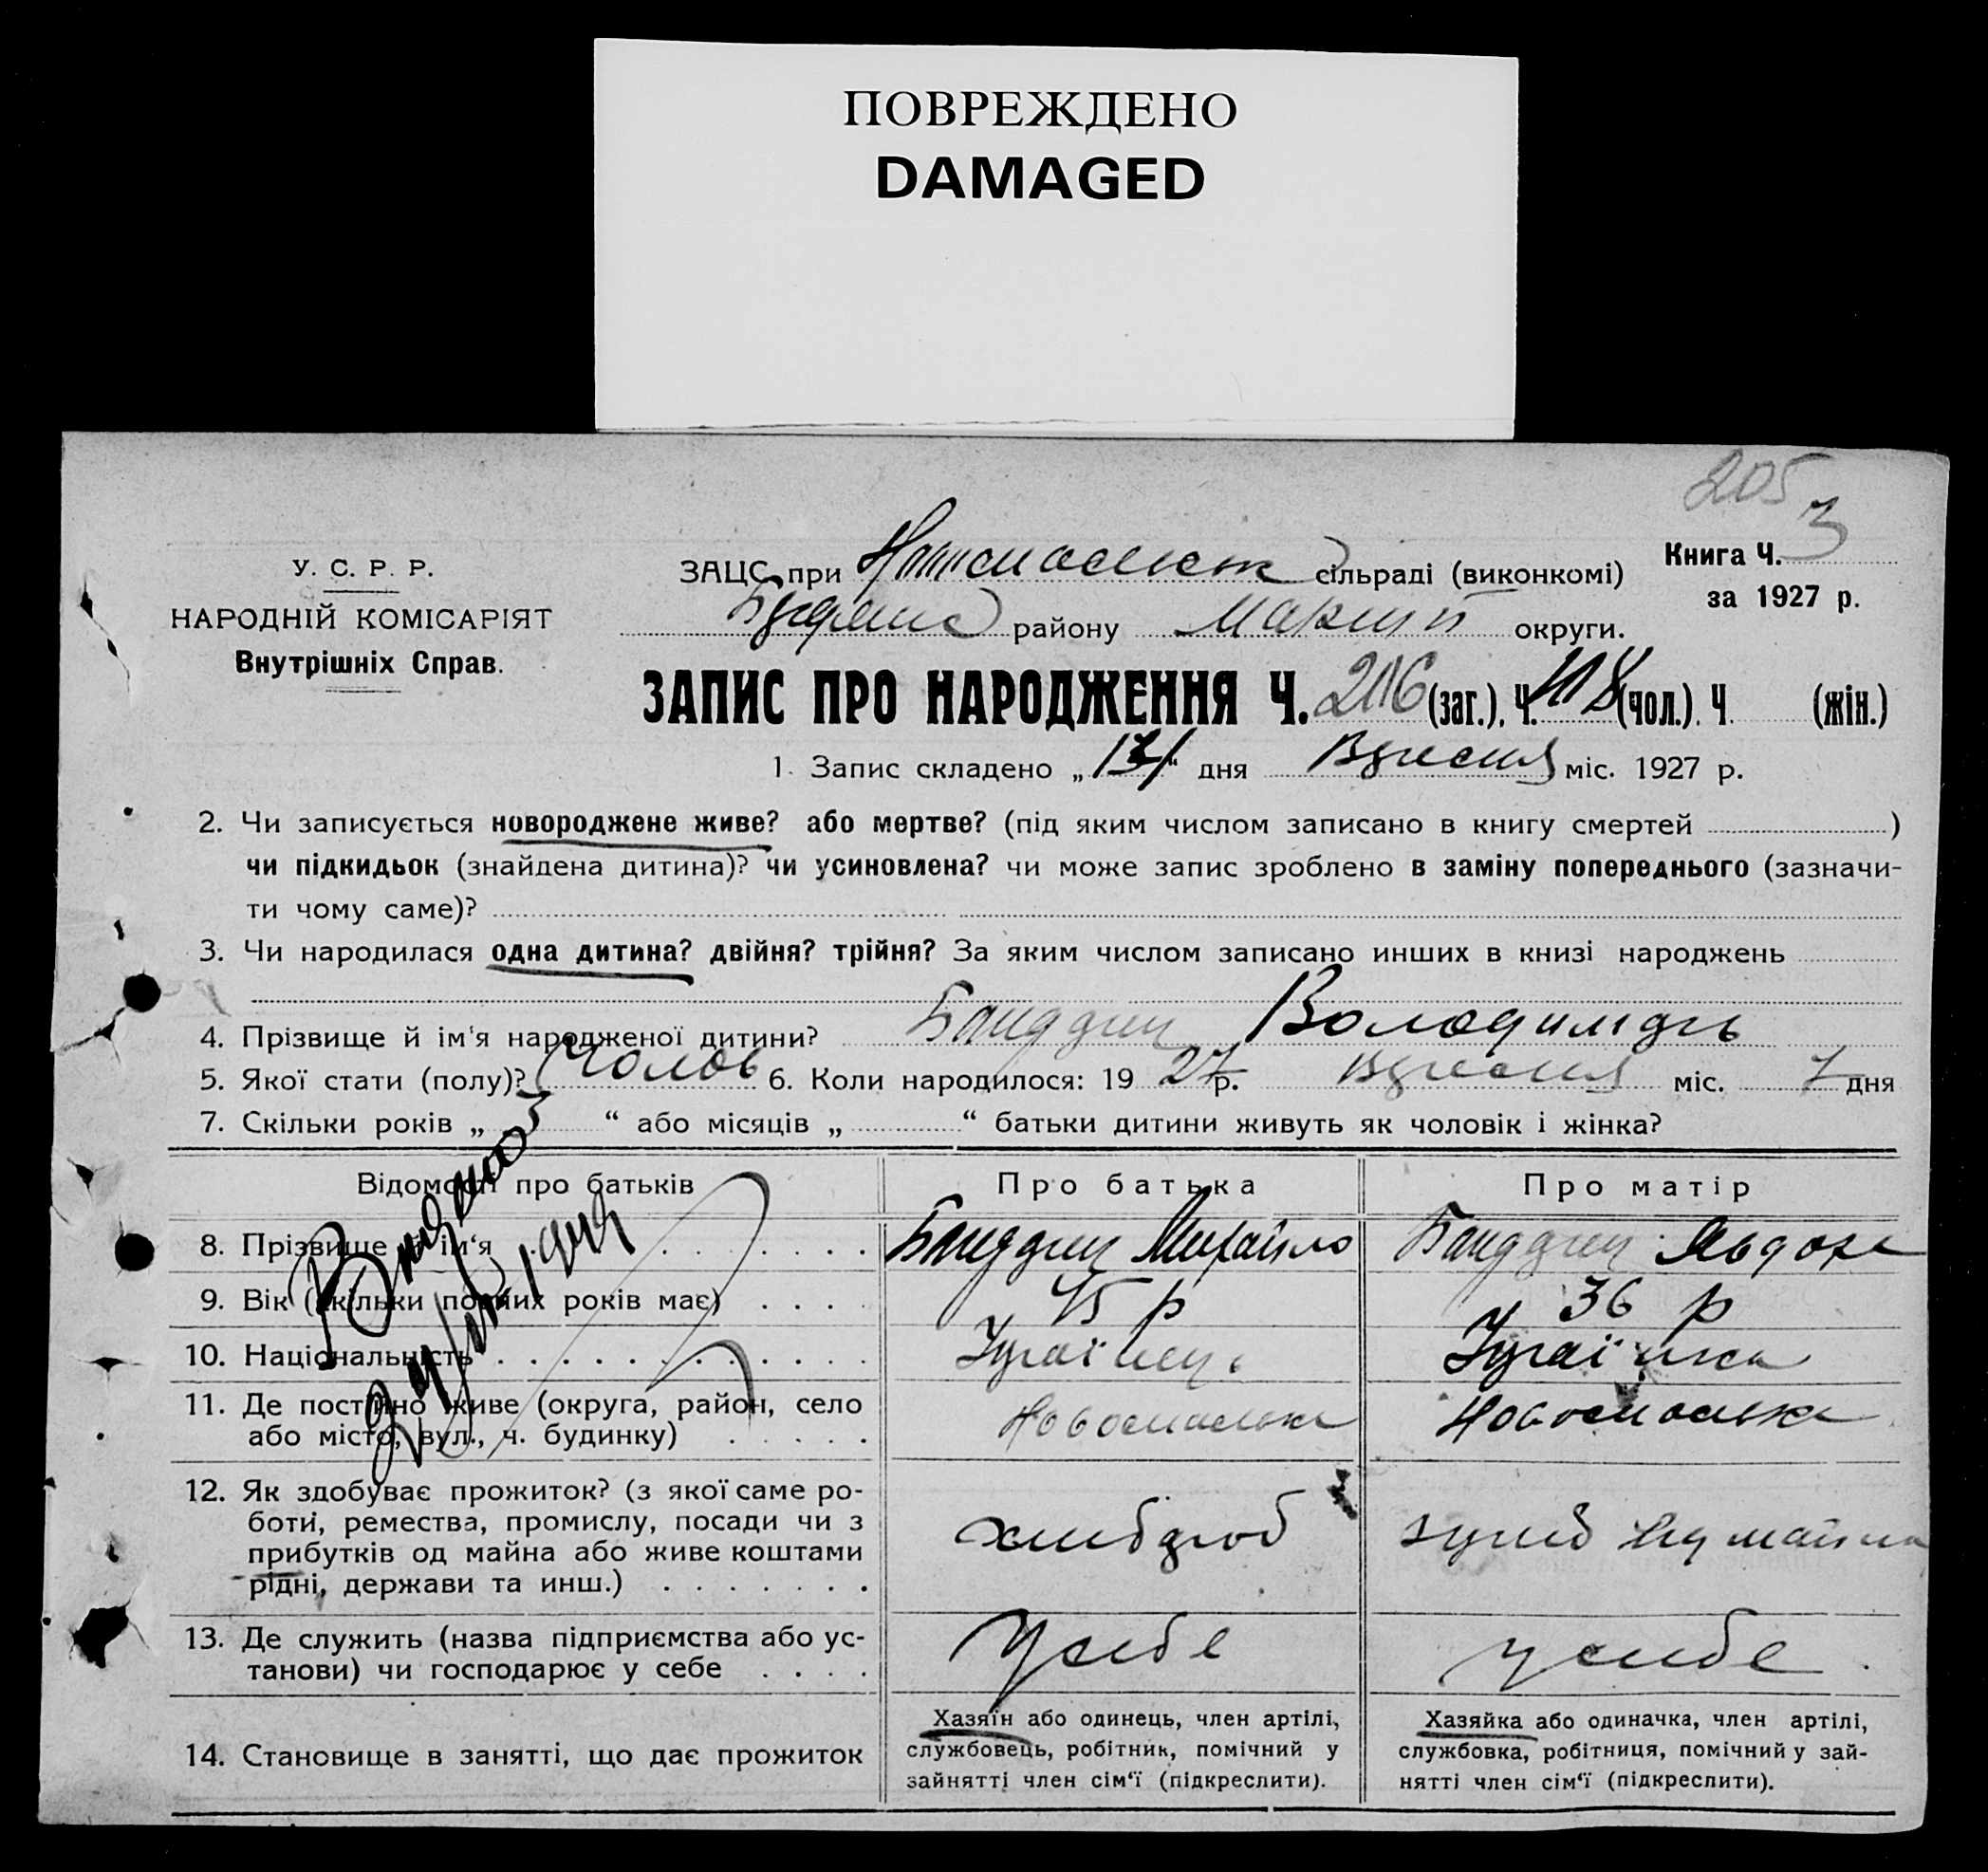 ПОВРЕЖДЕНО
DAMAGED
205
У. С. Р. Р.
НАРОДНІЙ КОМІСАРІЯТ
Внутрішніх Справ.
ЗАЦС при сільраді (виконкомі)
району округи.
Книга Ч. 3
за 1927 р.
ЗАПИС ПРО НАРОДЖЕННЯ Ч. (заг.), Ч. (чол.). Ч. (жін.)
1. Запис складено „ “ дня Вересня міс. 1927 р.
2. Чи записується новороджене живе? або мертве? (під яким числом записано в книгу смертей )
чи підкидьок (знайдена дитина)? чи усиновлена? чи може запис зроблено в заміну попереднього (зазначи-
ти чому саме)?
3. Чи народилася одна дитина? двійня? трійня? За яким числом записано инших в книзі народжень
4. Прізвище й ім'я народженої дитини? Володимир
5. Якої стати (полу)? Чолов 6. Коли народилося: 19 27 р. Вересня міс. 7 дня
7. Скільки років „ “ або місяців „ “ батьки дитини живуть як чоловік і жінка?
Відомості про батьків Про батька Про матір
8. Прізвище й ім‘я Михайло Явдоха
9. Вік (скільки повних років має) 45 р 36 р
10. Національність Україінка
11. Де постійно живе (округа, район, село
або місто, вул., ч. будинку)
12. Як здобуває прожиток? (з якої саме ро-
боти, ремества, промислу, посади чи з
прибутків од майна або живе коштами
рідні, держави та инш.)
хлибороб
13. Де служить (назва підприємства або ус-
танови) чи господарює у себе
У себе у себе
14. Становище в занятті, що дає прожиток
Хазяїн або одинець, член артілі,
службовець, робітник, помічний у
зайнятті член сім‘ї (підкреслити).
Хазяйка або одиначка, член артілі,
службовка, робітниця, помічний у зай-
нятті член сім‘ї (підкреслити).